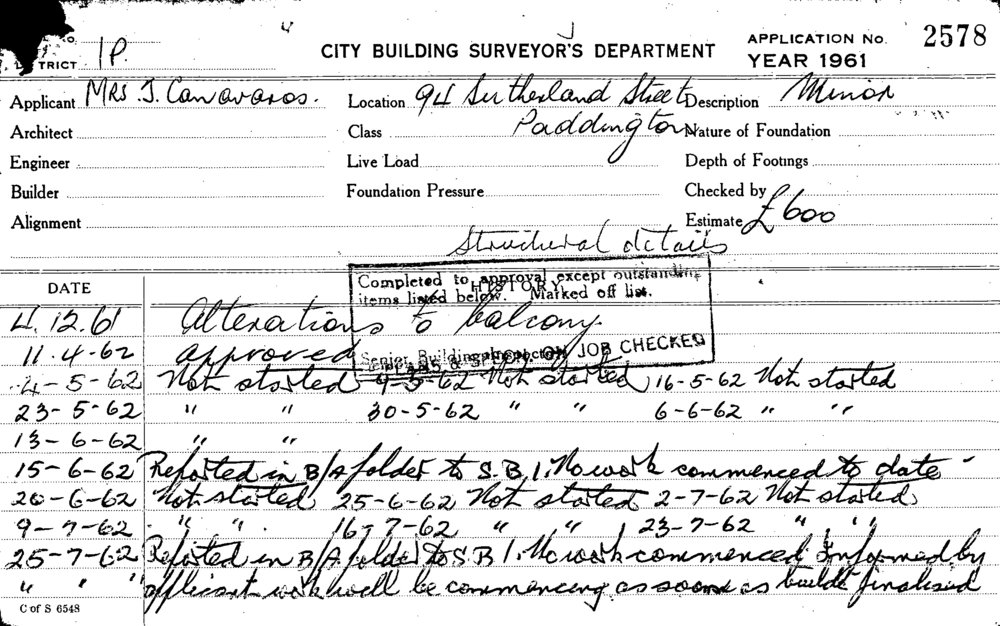 TRICT 1P. CITY BUILDING SURVEYOR'S DEPARTMENT APPLICATION No. 2578
YEAR 1961
Applicant Mrs J. Canavaros. Location 94 Sutherland Street Description Minor
Architect Class Paddington Nature of Foundation
Engineer Live Load Depth of Footings
Builder Foundation Pressure Checked by
Alignment Estimate £600
Structural details
DATE HISTORY
Completed to approval except outstanding
items listed below. Marked off list.
Senior Building Inspector
PLANS & SPECN. ON JOB CHECKED
4.12.61 Alterations to balcony.
11.4-62 approved
4-5-62 Not started 9-5-62 Not started 16-5-62 Not started
23-5-62 " " 30-5-62 " " 6-6-62 " "
13-6-62 " "
15-6-62 Reported in B/A folder to S.B.I. No work commenced to date -
20-6-62 Not started 25-6-62 Not started 2-7-62 Not started
9-7-62 " " 16-7-62 " " 23-7-62 " "
25-7-62 Reported in B/A folder to S.B.I. No work commenced. Informed by
" " " applicant work will be commencing as soon as builder finalised
C of S 6548